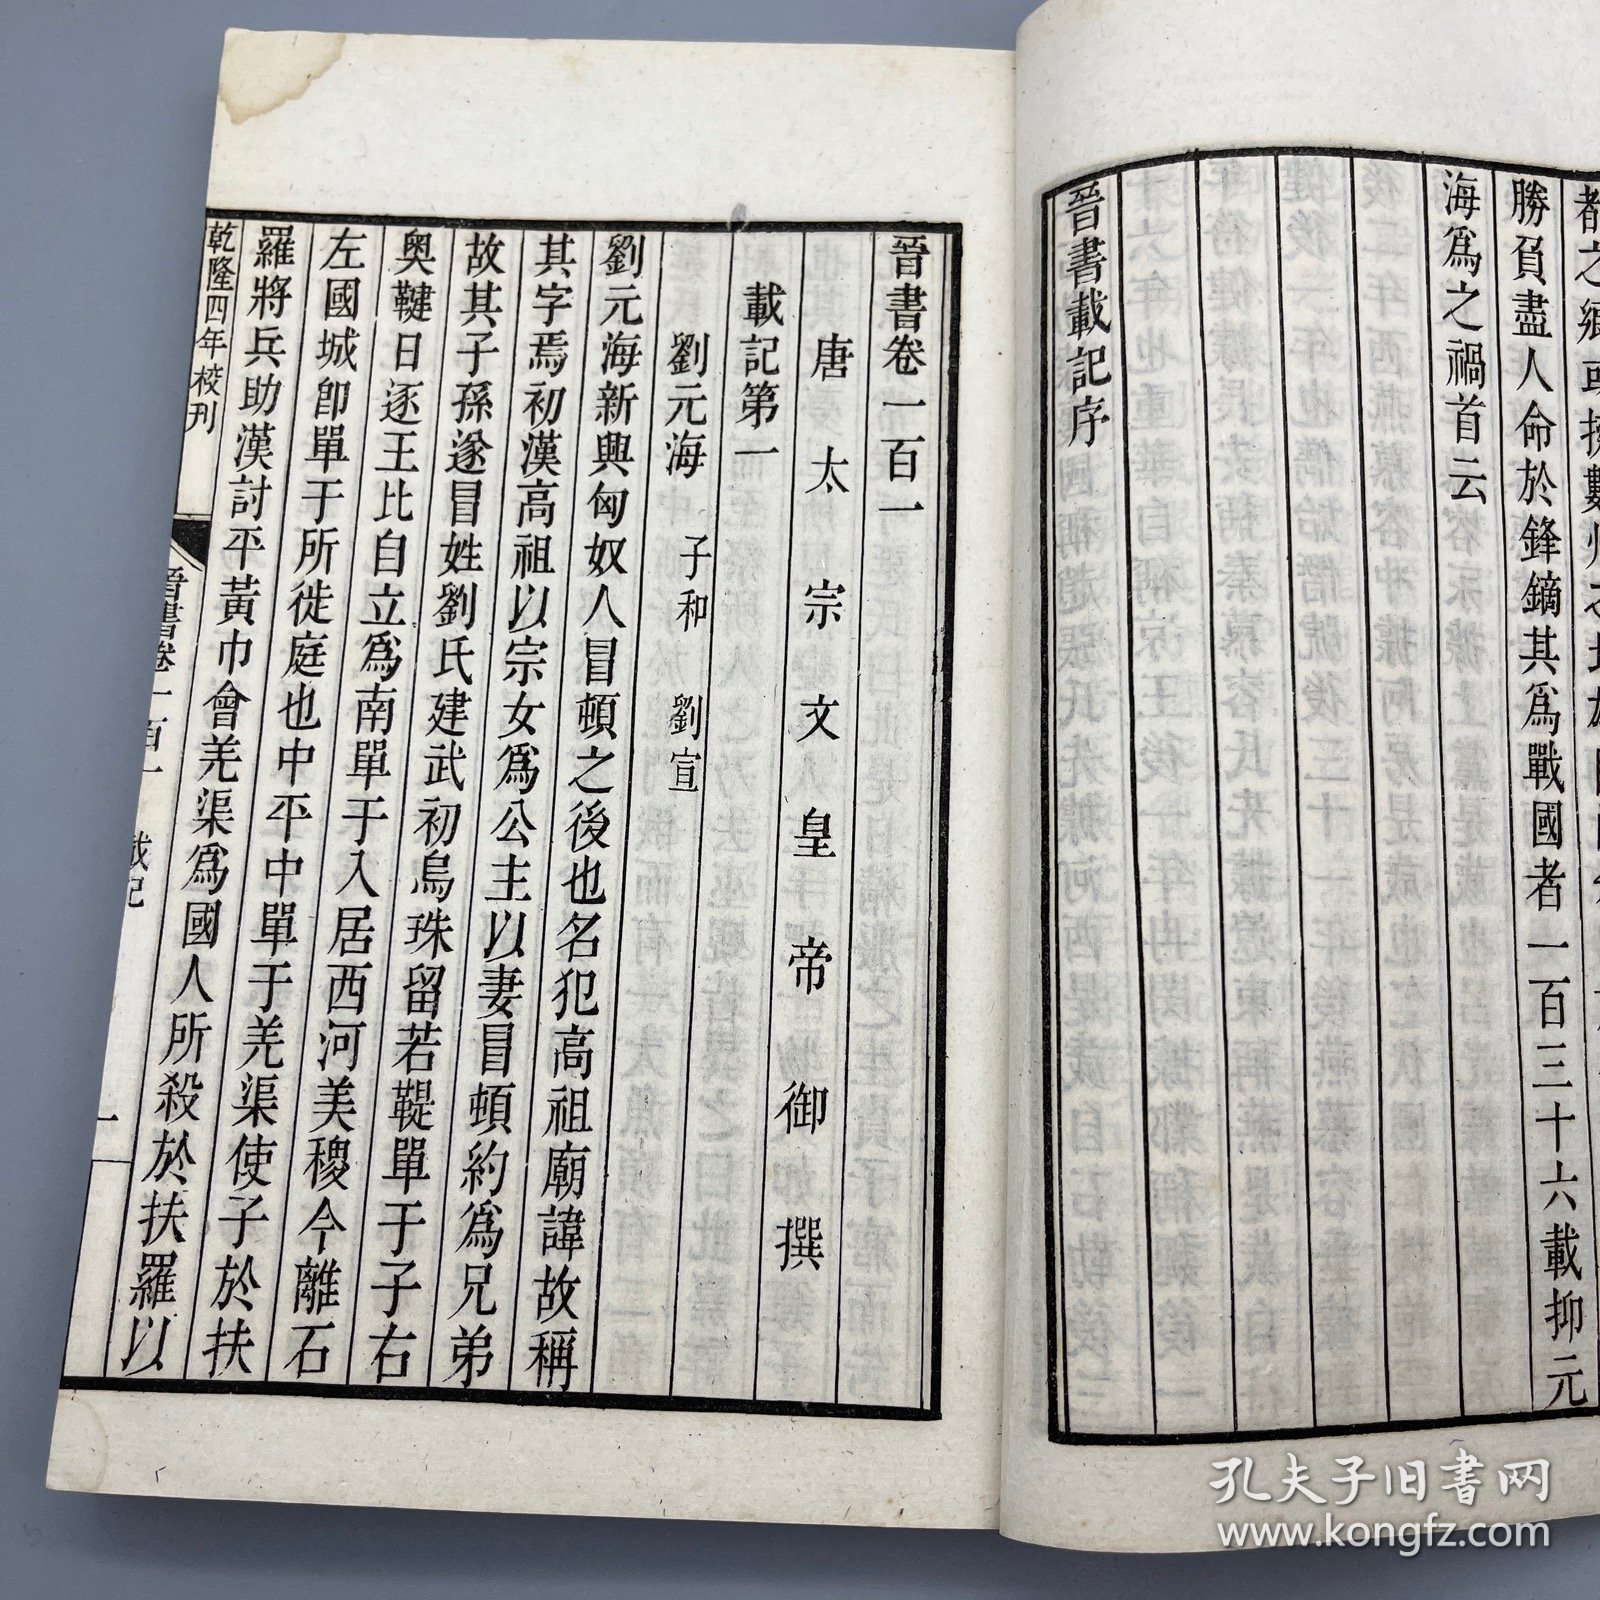 勝負盡人命於鋒鏑其爲戰國者一百三十六載抑元
海爲之禍首云
晉書載記序
晉書卷一百一
唐太宗文皇帝御撰
載記第一
劉元海 子和 劉宣
劉元海新興匈奴人冒頓之後也名犯高祖廟諱故稱
其字焉初漢高祖以宗女爲公主以妻冒頓約爲兄弟
故其子孫遂冒姓劉氏建武初烏珠留若鞮單于子右
奧鞬日逐王比自立爲南單于入居西河美稷今離石
左國城卽單于所徙庭也中平中單于羌渠使子於扶
羅將兵助漢討平黃巾會羌渠爲國人所殺於扶羅以
乾隆四年校刊
晉書卷一百一 載記 一
孔夫子旧书网
www.kongfz.com